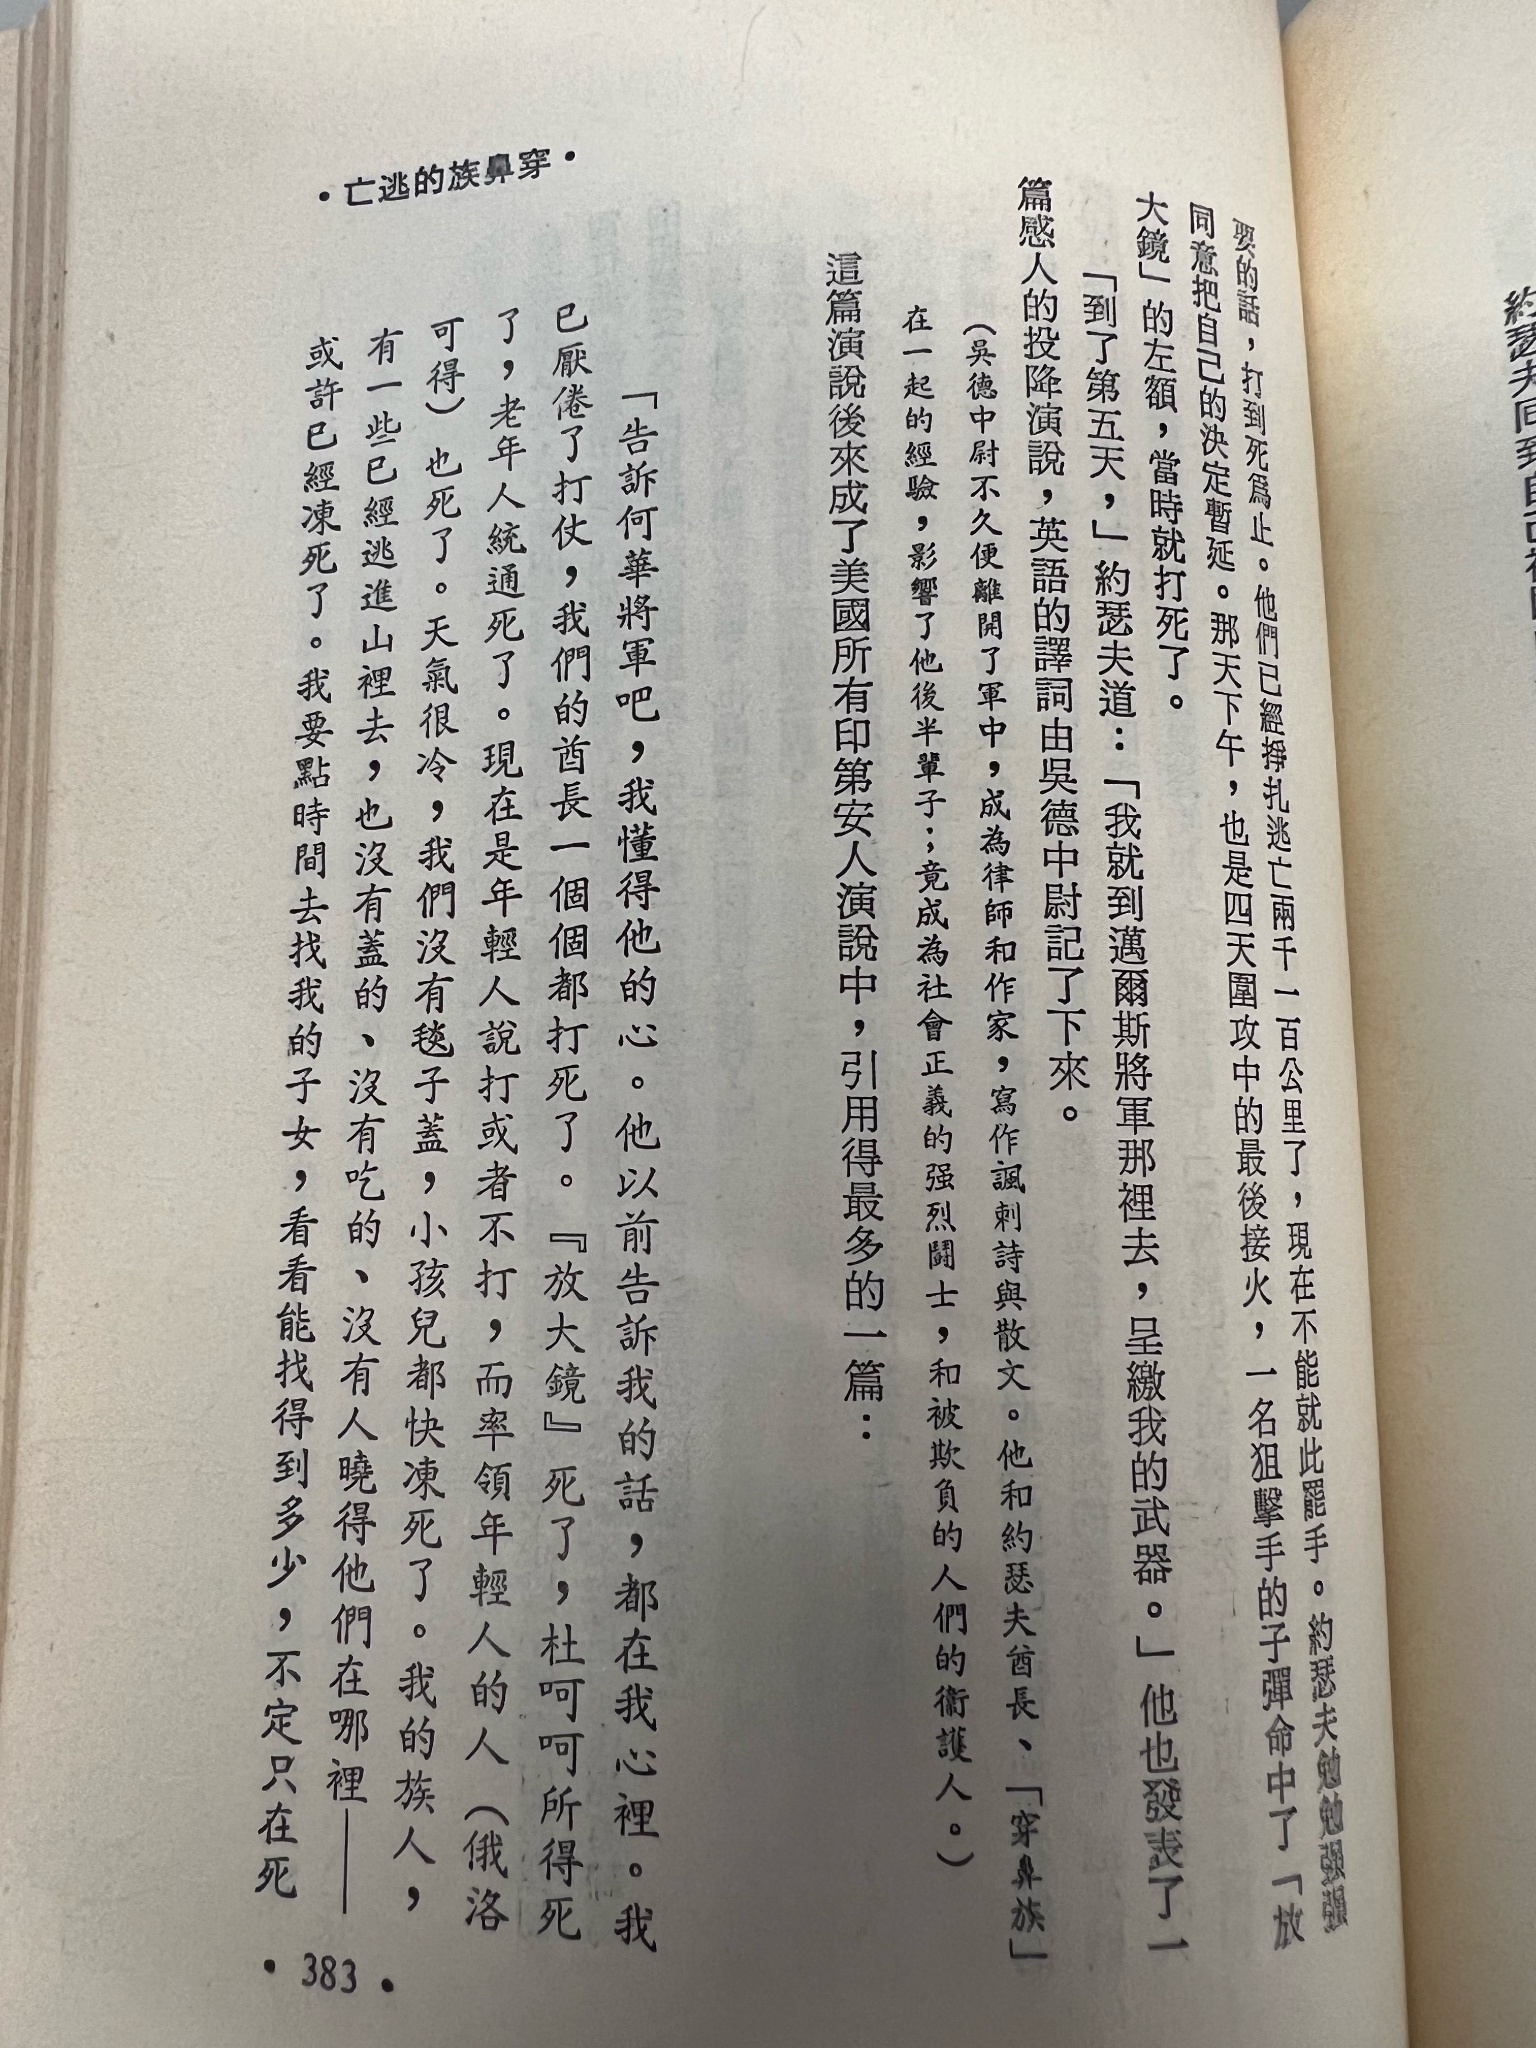 娶的話，打到死為止。他們已經掙扎逃亡兩千一百公里了，現在不能就此罷手。約瑟夫勉勉强强
同意把自己的決定暫延。那天下午，也是四天圍攻中的最後接火，一名狙擊手的子彈命中了「放
大鏡」的左額，當時就打死了。
「到了第五天，」約瑟夫道：「我就到邁爾斯將軍那裡去，呈繳我的武器。」他也發表了一
篇感人的投降演說，英語的譯詞由吳德中尉記了下來。
（吳德中尉不久便離開了軍中，成為律師和作家，寫作諷刺詩與散文。他和約瑟夫酋長、「穿鼻族」
在一起的經驗，影響了他後半輩子；竟成為社會正義的强烈鬪士，和被欺負的人們的衞護人。）
這篇演說後來成了美國所有印第安人演說中，引用得最多的一篇：
「告訴何華將軍吧，我懂得他的心。他以前告訴我的話，都在我心裡。我
已厭倦了打仗，我們的酋長一個個都打死了。『放大鏡』死了，杜呵呵所得死
了，老年人統通死了。現在是年輕人說打或者不打，而率領年輕人的人（俄洛
可得）也死了。天氣很冷，我們沒有毯子蓋，小孩兒都快凍死了。我的族人，
有一些已經逃進山裡去，也沒有蓋的、沒有吃的、沒有人曉得他們在哪裡——
或許已經凍死了。我要點時間去找我的子女，看看能找得到多少，不定只在死
•穿鼻族的逃亡•
•383•